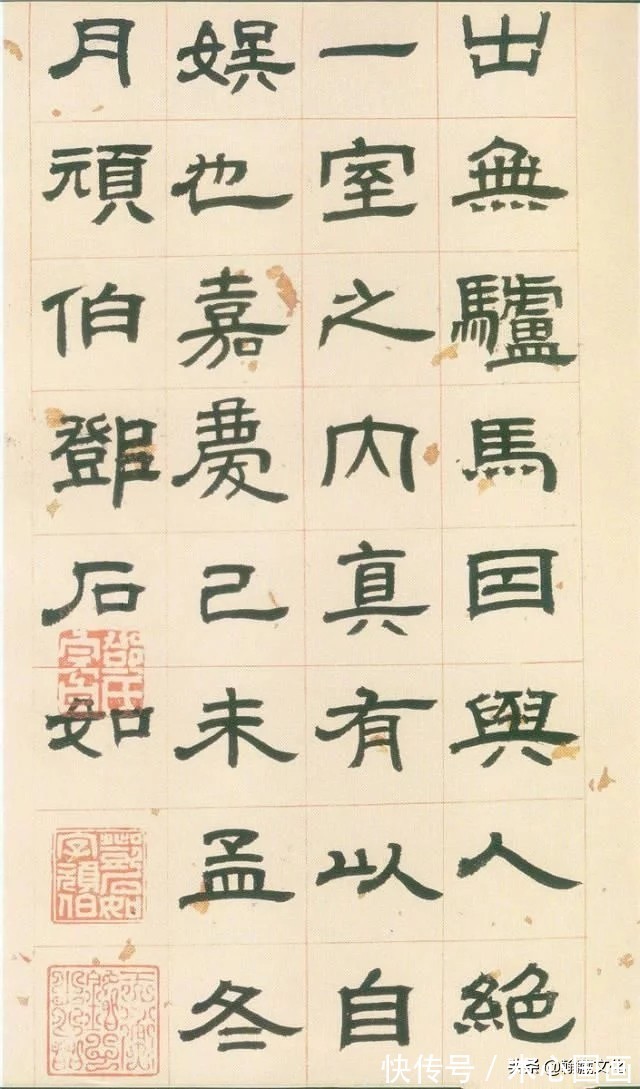 出無驢馬因與人絕
一室之内真有以自
娱也嘉慶己未孟冬
月頑伯鄧石如
鄧石如
字頑伯
快传号 /